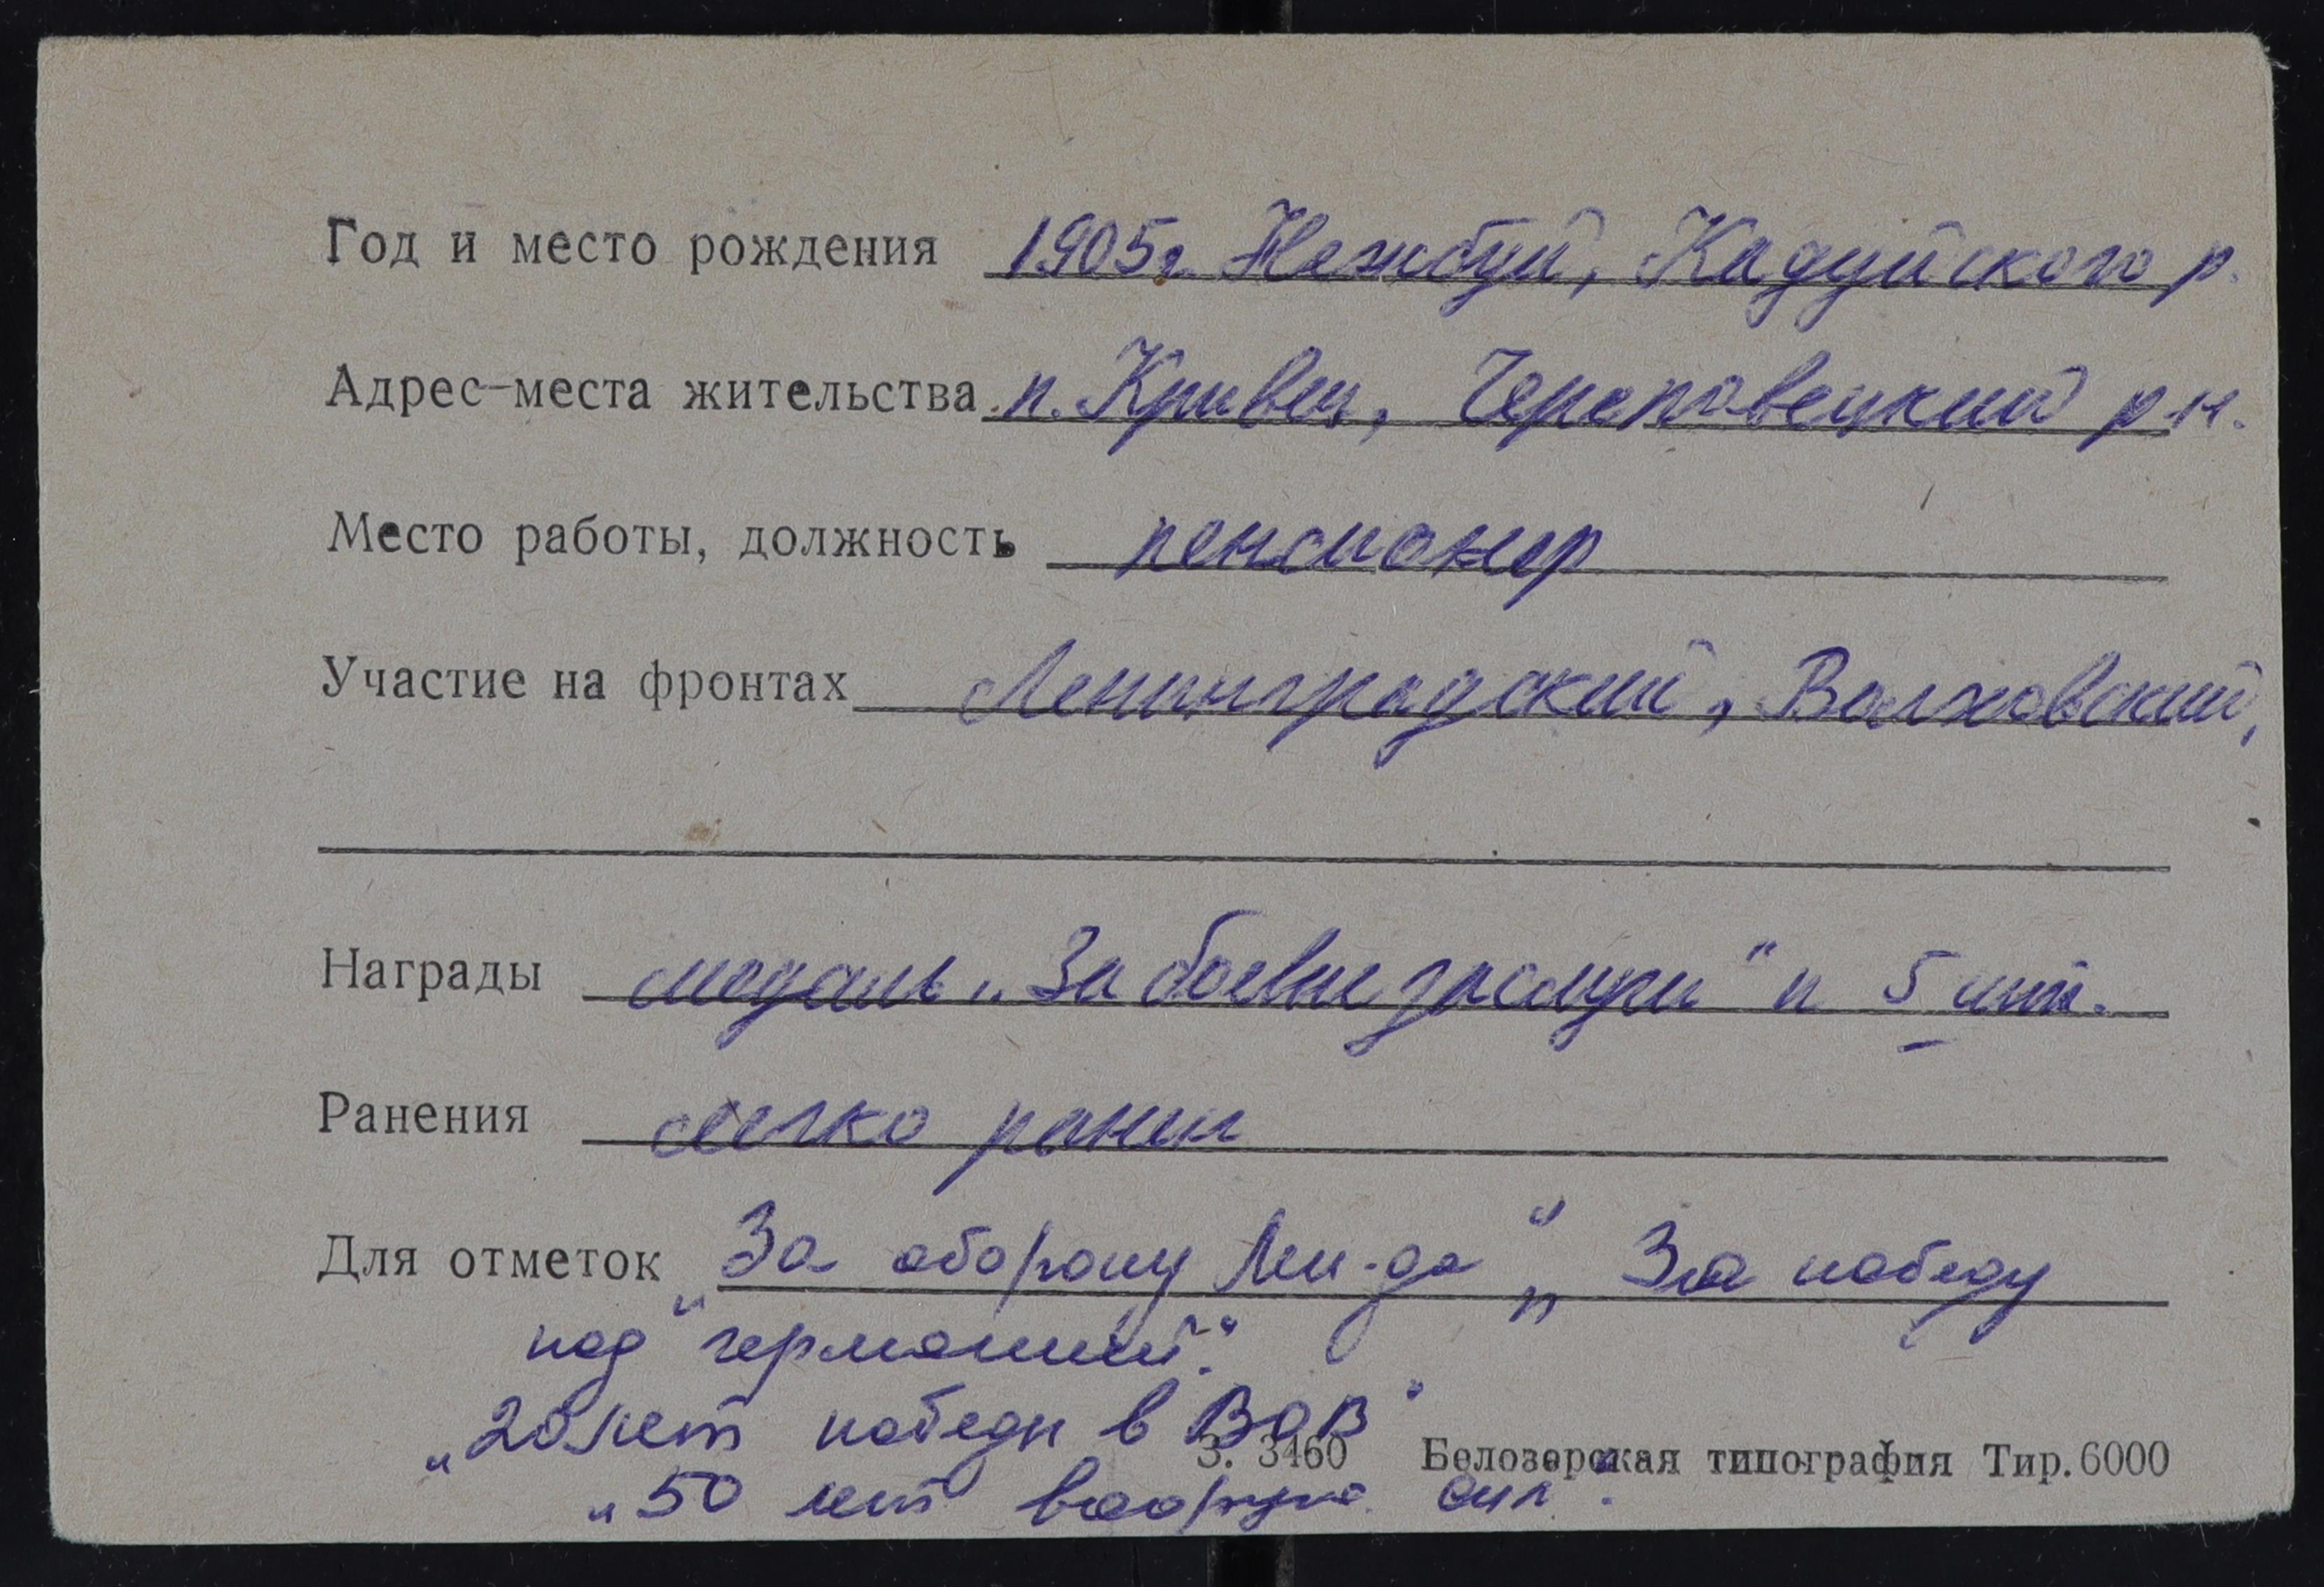 Год и место рождения 1905г. Нежбуй, Кадуйского р.
Адрес-места жительства п. Кривец, Череповецкий р-н.
Место работы, должность пенсионер
Участие на фронтах Ленинградский, Волховский,
Награды медаль „За боевые заслуги“ и 5 шт.
Ранения легко ранен
Для отметок „За оборону Лен-да“ „За победу
над германией“.
„20 лет победы в ВОВ“
З. 3460 Белозерская типография Тир. 6000
„50 лет вооруж. сил“.